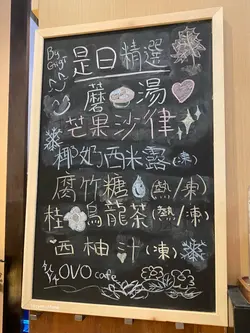 By Gigi
是日精選
蘑湯
芒果沙律
椰奶西米露(凍)
腐竹糖水(熱/凍)
桂花烏龍茶(熱/凍)
西柚汁(凍)
OVO cafe